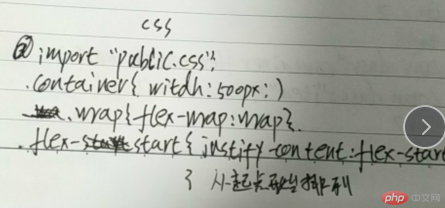 css
@import "public.css";
.container{ witdh:500px; )
.wrap{flex-wrap:wrap}.
.flex-start{ justify-content:flex-start
} 从起点开始排列
php 中文网